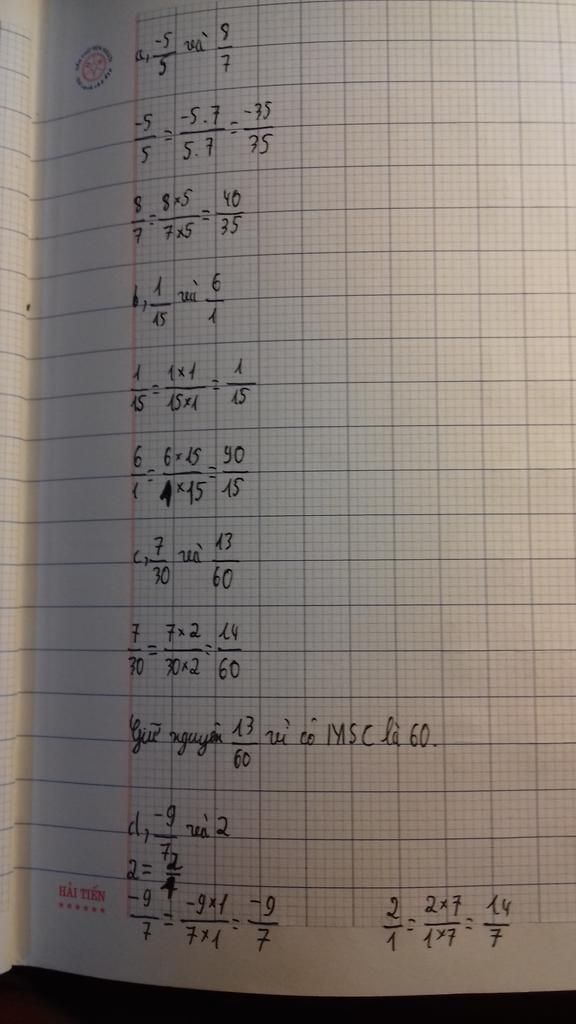 a, -5/5 và 8/7
-5/5 = -5.7/5.7 = -35/35
8/7 = 8×5/7×5 = 40/35
b, 1/15 và 6/1
1/15 = 1×1/15×1 = 1/15
6/1 = 6×15/1×15 = 90/15
c, 7/30 và 13/60
7/30 = 7×2/30×2 = 14/60
Giữ nguyên 13/60 vì có MSC là 60.
d, -9/7 và 2
2 = 2/1
-9/7 = -9×1/7×1 = -9/7 2/1 = 2×7/1×7 = 14/7
HẢI TIẾN